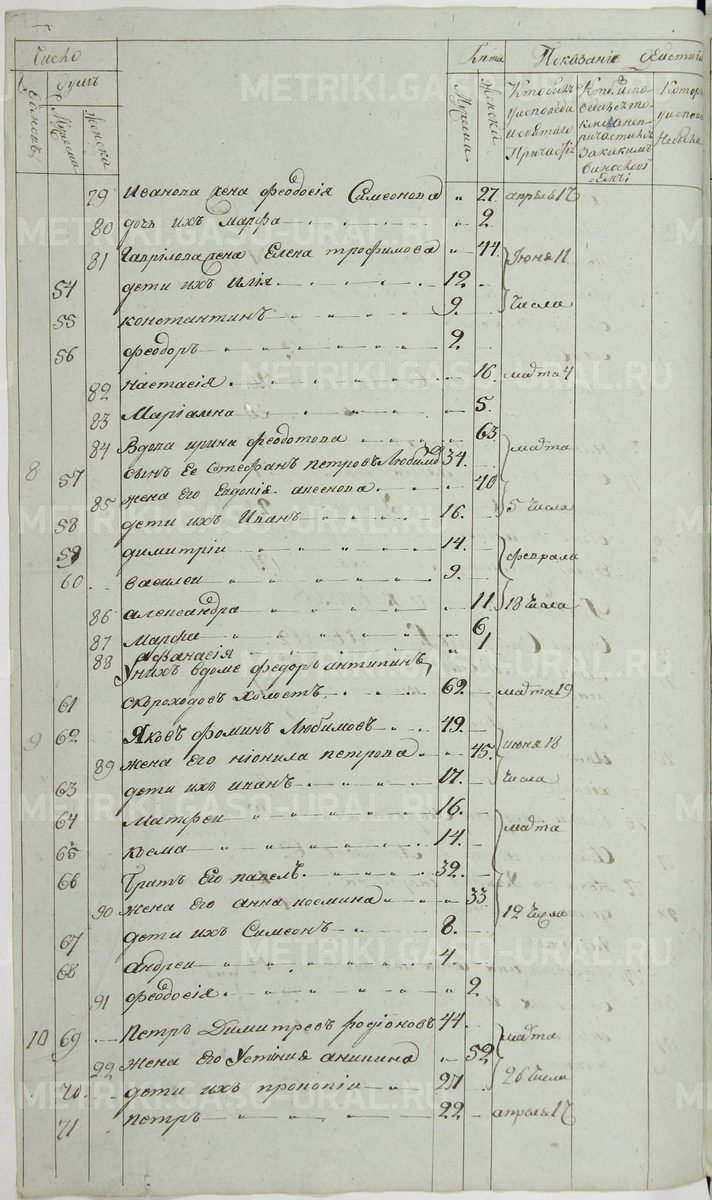 Число Лѣта Показаніе Дѣйствія
Домовъ Душъ Мужеска Женска Мужеска Женска Кто былъ у исповѣди и святаго Причастія
79 Иванова жена Феодосія Симеонова " 27. апреля 17
80 дочь ихъ Марфа " 2
81 Гаврілова жена Елена трофимова " 44. Іюня 11
54 дети ихъ Илія 12. числа
55 константинъ 9.
56 феодоръ 2.
82 настасія 16. марта 4
83 Маріамна 5.
84 Вдова ирина феодотова 63 марта
8 57 сынъ Ее Стефанъ Петровъ Любимов 34.
85 жена Его Евдокіа аксенова 40 5 числа
58 дети ихъ Иванъ 16.
59 димитріи 14. феврала
60 василеи 9.
86 александра 11. 18 числа
87 Марфа 6
88 Афанасія 1
У нихъ вдоме федоръ антипинъ
61 скороходовъ холостъ 62 марта 19
9 62 Яковъ фоминъ Любимовъ 49. июня 18
89 жена Его ніонила петрова 45. числа
63 дети ихъ иванъ 17.
64 Матфеи 16. марта
65 козма 14.
66 братъ Его павелъ 32.
90 жена Его анна козмина 33. 12 числа
67 дети ихъ Симеонъ 8.
68 андреи 4.
91 феодосія 2
10 69 Петръ Димитревъ родіоновъ 44. марта
92 жена Его Устиніа аникина 52 26 числа
70 дети ихъ прокопіи 27
71 петръ 22 апреля 17
METRIKI.GASO-URAL.RU